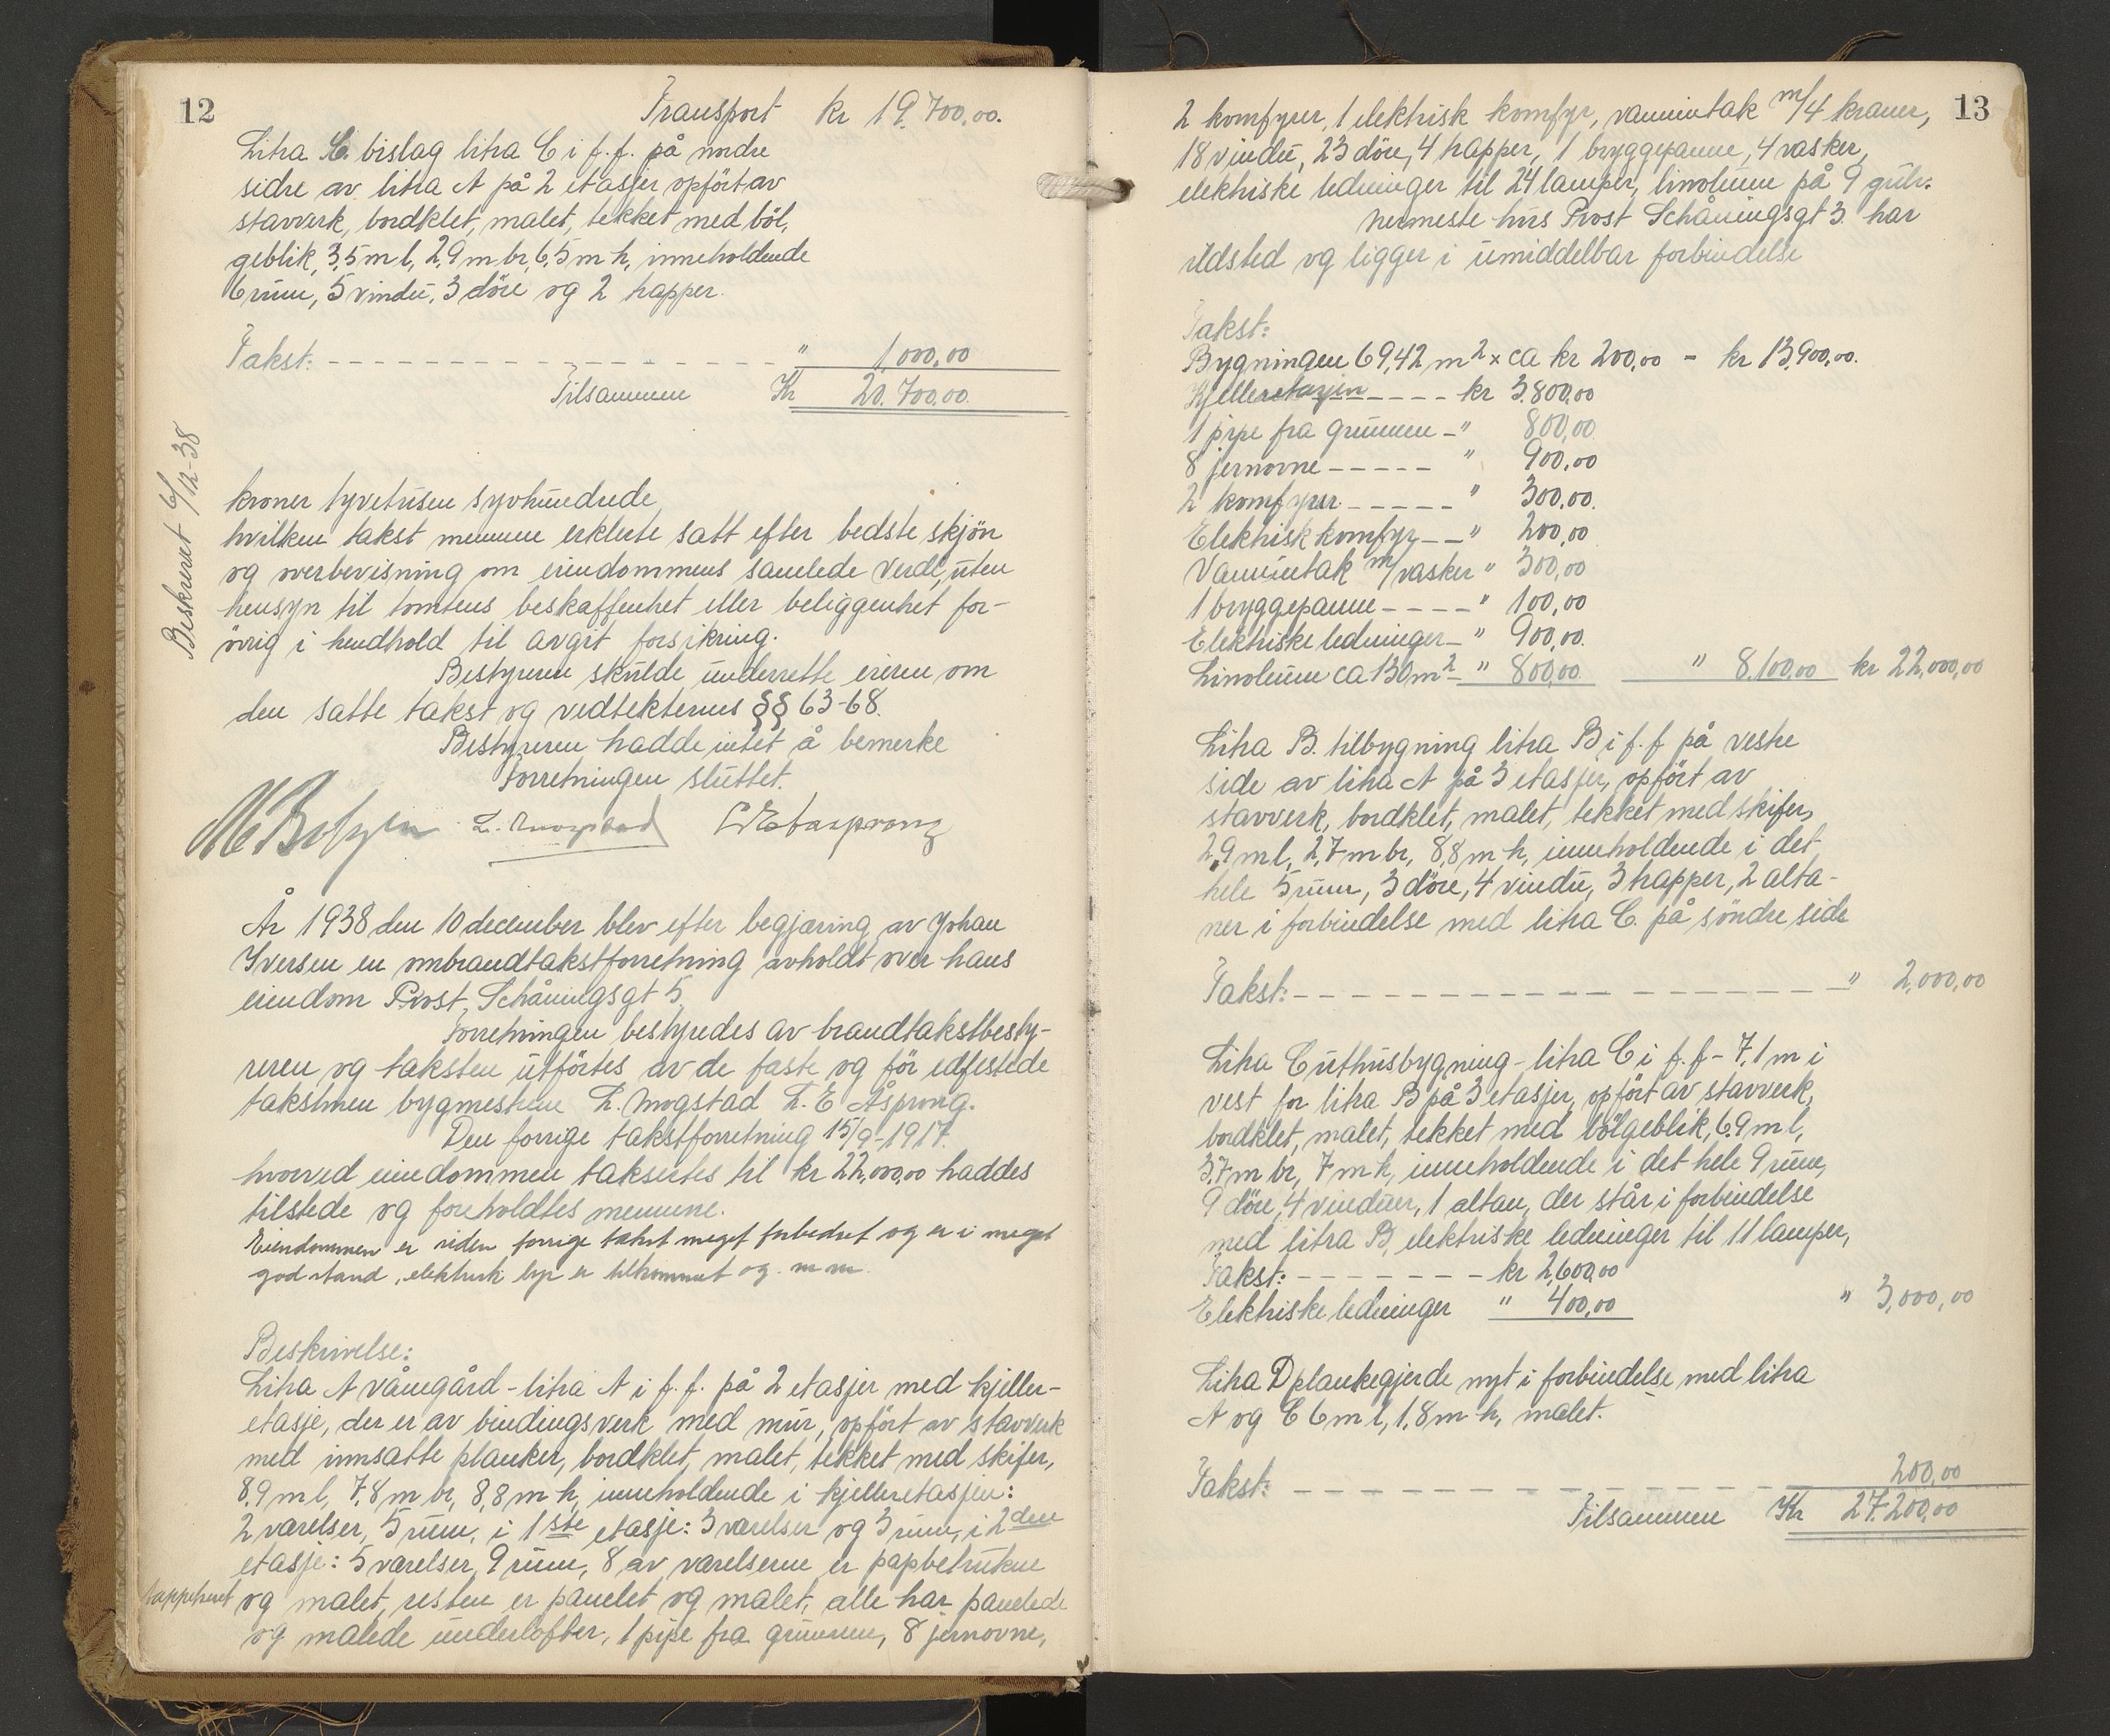 12
Transport kr 19.700,00.
Litra C. bislag litra C i f.f. på nordre
sidre av litra A på 2 etasjer opført av
stavverk, bordklet, malet, tekket med böl,
geblik, 3,5 m l, 2,9 m br, 6,5 m h, inneholdende
6 rum, 5 vindu, 3 döre og 2 trapper.
Takst: " 1,000,00
Tilsammen Kr 20.700,00.
Beskrevet 6/12-38
kroner tyvetusen syvhundrede
hvilken takst mennene erklerte satt efter bedste skjön
og overbevisning om eiendommens samlede verdi, uten
hensyn til tomtens beskaffenhet eller beliggenhet for-
övrig i hendhold til avgit forsikring.
Bestyreren skulde underrette eieren om
den satte takst og vedtekternes §§ 63-68.
Bestyreren hadde intet å bemerke
Forretningen sluttet.
L. Mogstad
År 1938 den 10 december blev efter begjæring av Johan
Iversen en ombrandtakstforretning avholdt over hans
eiendom Prost Schåningsgt 5.
Forretningen bestyredes av brandtakstbesty-
reren og taksten utförtes av de faste og för edfestede
takstmen bygmestrene L. Mogstad L. E Åsprong.
Den forrige takstforretning 15/9-1917.
hvorved eiendommen taksertes til kr 22,000,00 haddes
tilstede og foreholdtes mennene.
Eiendommen er siden forrige takst meget forbedret og er i meget
god stand, elektrisk lys er tilkommet og. m m.
Beskrivelse:
Litra A våningård - litra A i f.f. på 2 etasjer med kjeller-
etasje, der er av bindingsverk med mur, opført av stavverk
med innsatte planker, bordklet, malet, tekket med skifer,
8,9 m l, 7,8 m br, 8,8 m h, inneholdende i kjelleretasjen:
2 værelser, 5 rum, i 1ste etasje: 3 værelser og 3 rum, i 2den
etasje: 5 værelser, 9 rum, 8 av værelserne er papbetrukne
tappetseret og malet, resten er panelet og malet, alle har panelede
og malede underlofter, 1 pipe fra grunnen, 8 jernovne,
13
2 komfyrer, 1 elektrisk komfyr, vanninntak m/4 kraner,
18 vindu, 23 döre, 4 trapper, 1 bryggepanne, 4 vasker,
elektriske ledninger til 24 lamper, linoleum på 9 gulv.
Nermeste hus Prost Schåningsgt 3. har
ildsted og ligger i umiddelbar forbindelse
Takst:
Bygningen 69,42 m2 x ca kr 200,00 - kr 13,900,00.
Kjelleretasjen kr 3.800,00
1 pipe fra grunnen - " 800,00
8 jernovne " 900,00
2 komfyrer " 300,00.
Elektrisk komfyr " 200,00
Vanninntak m/vasker " 300,00
1 bryggepanne " 100,00
Elektriske ledninger " 900,00.
Linoleum ca 130 m2 " 800,00. " 8,100,00 kr 22,000,00
Litra B. tilbygning litra B i f.f på vestre
side av litra A på 3 etasjer, opfört av
stavverk, bordklet, malet, tekket med skifer,
2,9 m l, 2,7 m br, 8,8 m h, inneholdende i det
hele 5 rum, 3 döre, 4 vindu, 3 trapper, 2 alta-
ner i forbindelse med litra C. på söndre side
Takst: " 2,000,00
Litra C uthusbygning - litra C i f.f - 7,1 m i
vest for litra B på 3 etasjer, opfört av stavverk,
bordklet, malet, tekket med bölgeblik, 6,9 m l,
3,7 m br, 7 m h, inneholdende i det hele 9 rum,
9 döre, 4 vinduer, 1 altan, der står i forbindelse
med litra B, elektriske ledninger til 11 lamper,
Takst: kr 2,600,00
Elektriske ledninger " 400,00 " 3,000,00
Litra D plankegjerde nyt i forbindelse med litra
A og C 6 m l, 1,8 m h, malet.
Takst: 200,00
Tilsammen Kr 27.200,00